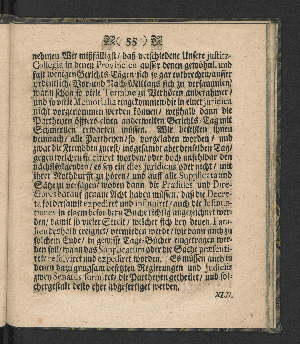 ( 55 )
nehmen Wir mißfälligst / daß verschiedene Unsere Justitz-
Collegia in denen Provincien ausser denen gewöhnl. und
fast wenigen Gerichts-Tägen sich so gar entbrechen / ausser
ordentlich Vor- und Nach-Mittags sich zu versammlen /
wann schon so viele Termine zu Verhören anberahmet /
und so viele Memorialia eingekommen die in einer Juridica
nicht vorgenommen werden können / weßhalb dann die
Partheyen öffters einen anderweiten Gerichts-Tag mit
Schmertzen erwarten müssen. Wir befehlen ihnen
demnach / alle Partheyen / so vorgeladen worden / und
zwar die Frembden zuerst / insgesammt
nächstfolgenden / es sey ein dies juridicus oder nicht / mit
ihrer Nothdurfft zu hören / und auff alle Supplicata und
Sätze zu verfügen / wobey dann die Præsides und Dire-
ctores darauf genaue Acht haben müssen / daß die Decre-
ta fordersamst expediret und insinuiret / auch die
in einem besondern Buche fleißig angezeichnet wer-
den / damit so vieler Streit / welcher sich bey denen
deßhalb ereignet / vermieden werde / wie dann auch zu
solchem Ende / in gewisse Tage-Bücher eingetragen wer-
den soll / wann das Supplicatum oder die Sache præsenti-
ret / resolviret und expediret worden. Es müssen auch in
denen dazu gnugsam besetzten Regierungen und Judiciis
zwey Senatus formiret / die Partheyen getheilet / und sol-
chergestalt desto eher abgefertiget werden.
XLII.